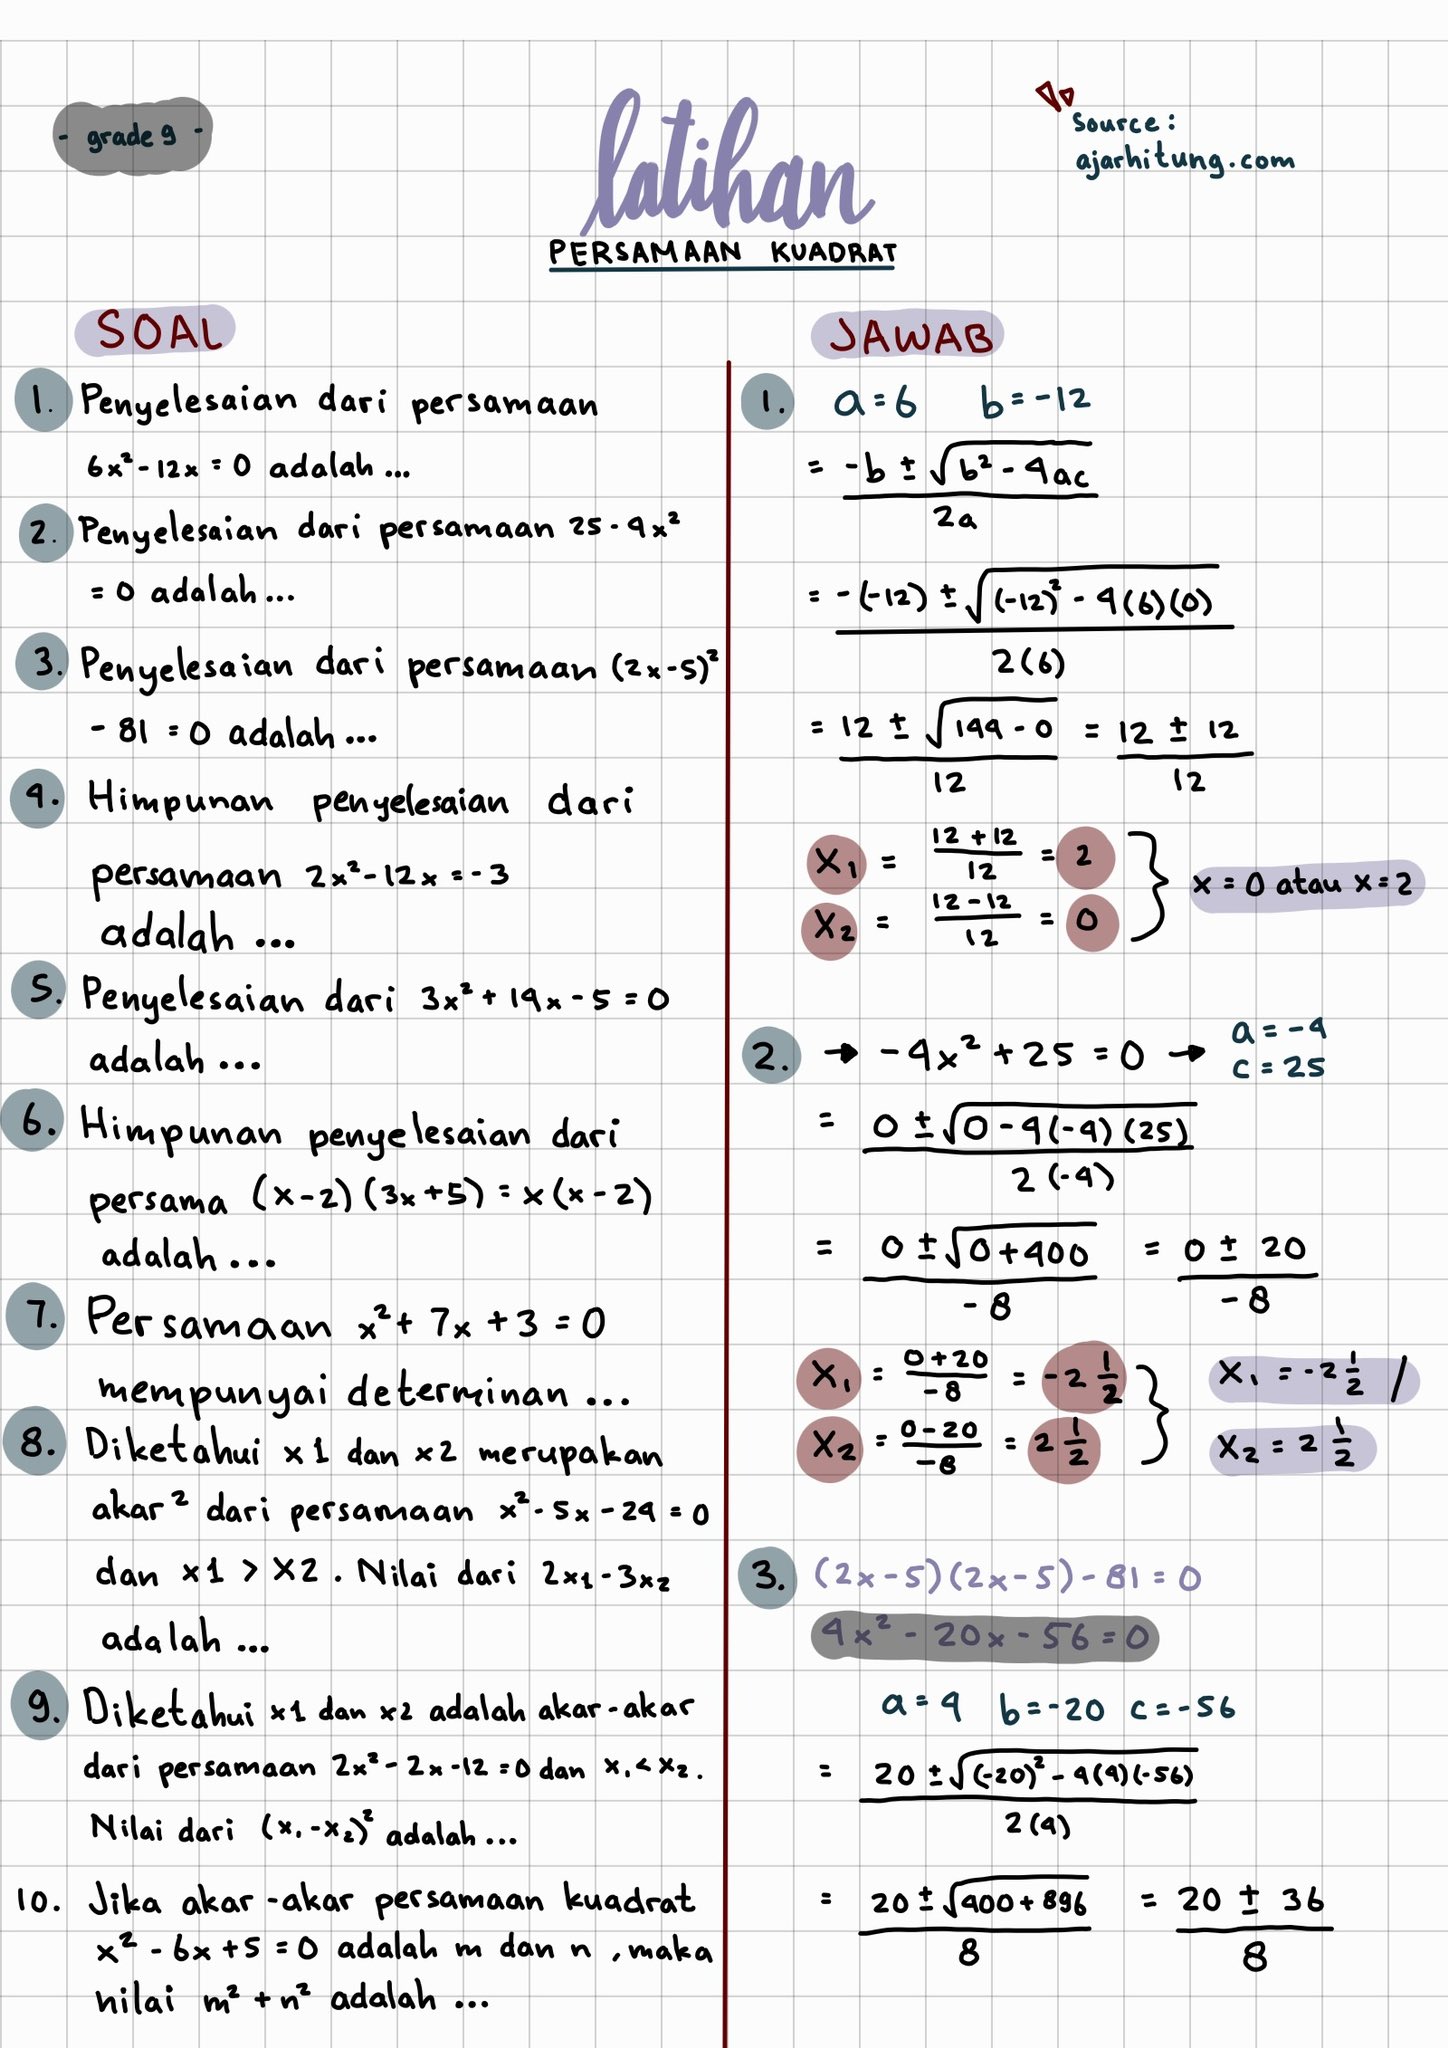 - grade 9 -
Source:
ajarhitung.com
latihan
PERSAMAAN KUADRAT
SOAL
1. Penyelesaian dari persamaan
6x² - 12x = 0 adalah ...
2. Penyelesaian dari persamaan 25 - 4x²
= 0 adalah ...
3. Penyelesaian dari persamaan (2x-5)²
- 81 = 0 adalah ...
4. Himpunan penyelesaian dari
persamaan 2x² - 12x = -3
adalah ...
5. Penyelesaian dari 3x² + 14x - 5 = 0
adalah ...
6. Himpunan penyelesaian dari
persama (x-2)(3x+5) = x(x-2)
adalah ...
7. Persamaan x² + 7x + 3 = 0
mempunyai determinan ...
8. Diketahui x1 dan x2 merupakan
akar² dari persamaan x² - 5x - 24 = 0
dan x1 > x2. Nilai dari 2x₁ - 3x₂
adalah ...
9. Diketahui x1 dan x2 adalah akar-akar
dari persamaan 2x² - 2x - 12 = 0 dan x₁ < x₂.
Nilai dari (x₁ - x₂)² adalah ...
10. Jika akar-akar persamaan kuadrat
x² - 6x + 5 = 0 adalah m dan n, maka
nilai m² + n² adalah ...
JAWAB
1. a = 6 b = -12
= -b ± √b² - 4ac
2a
= -(-12) ± √(-12)² - 4(6)(0)
2(6)
= 12 ± √144 - 0 = 12 ± 12
12 12
x₁ = 12 + 12 / 12 = 2
x₂ = 12 - 12 / 12 = 0
x = 0 atau x = 2
2. → -4x² + 25 = 0 → a = -4
c = 25
= 0 ± √0 - 4(-4)(25)
2(-4)
= 0 ± √0 + 400 = 0 ± 20
-8 -8
x₁ = 0 + 20 / -8 = -2 1/2 x₁ = -2 1/2 /
x₂ = 0 - 20 / -8 = 2 1/2 x₂ = 2 1/2
3. (2x-5)(2x-5) - 81 = 0
4x² - 20x - 56 = 0
a = 4 b = -20 c = -56
= 20 ± √(-20)² - 4(4)(-56)
2(4)
= 20 ± √400 + 896 = 20 ± 36
8 8